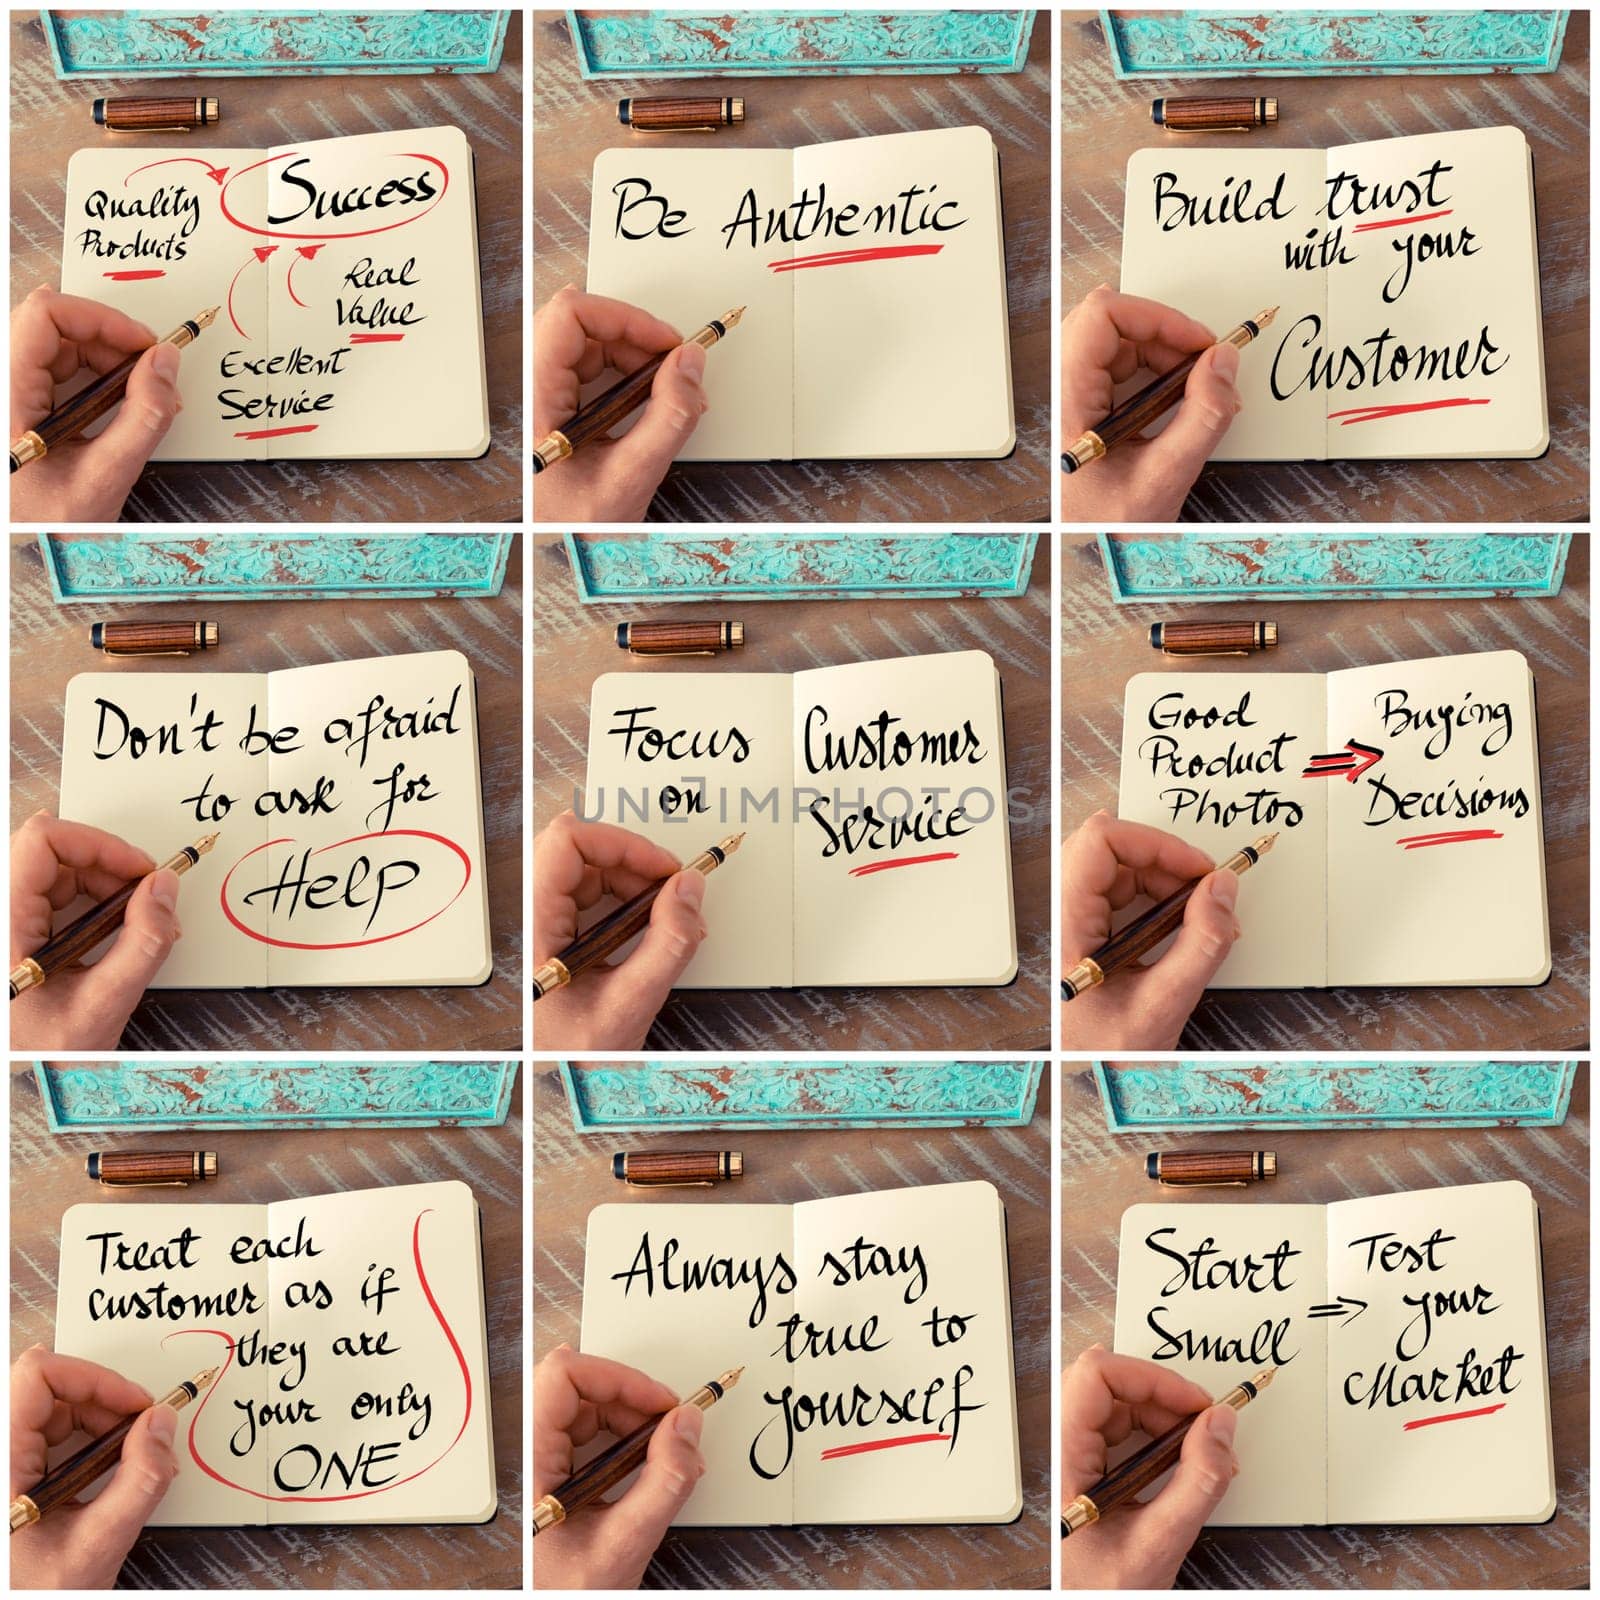 Quality
Products
Success
Real
Value
Excellent
Service
Be Authentic
Build trust
with your
Customer
Don't be afraid
to ask for
Help
Focus
on
Customer
Service
Good
Product
Photos
Buying
Decisions
Treat each
customer as if
they are
your only
ONE
Always stay
true to
yourself
Start
Small
Test
your
Market